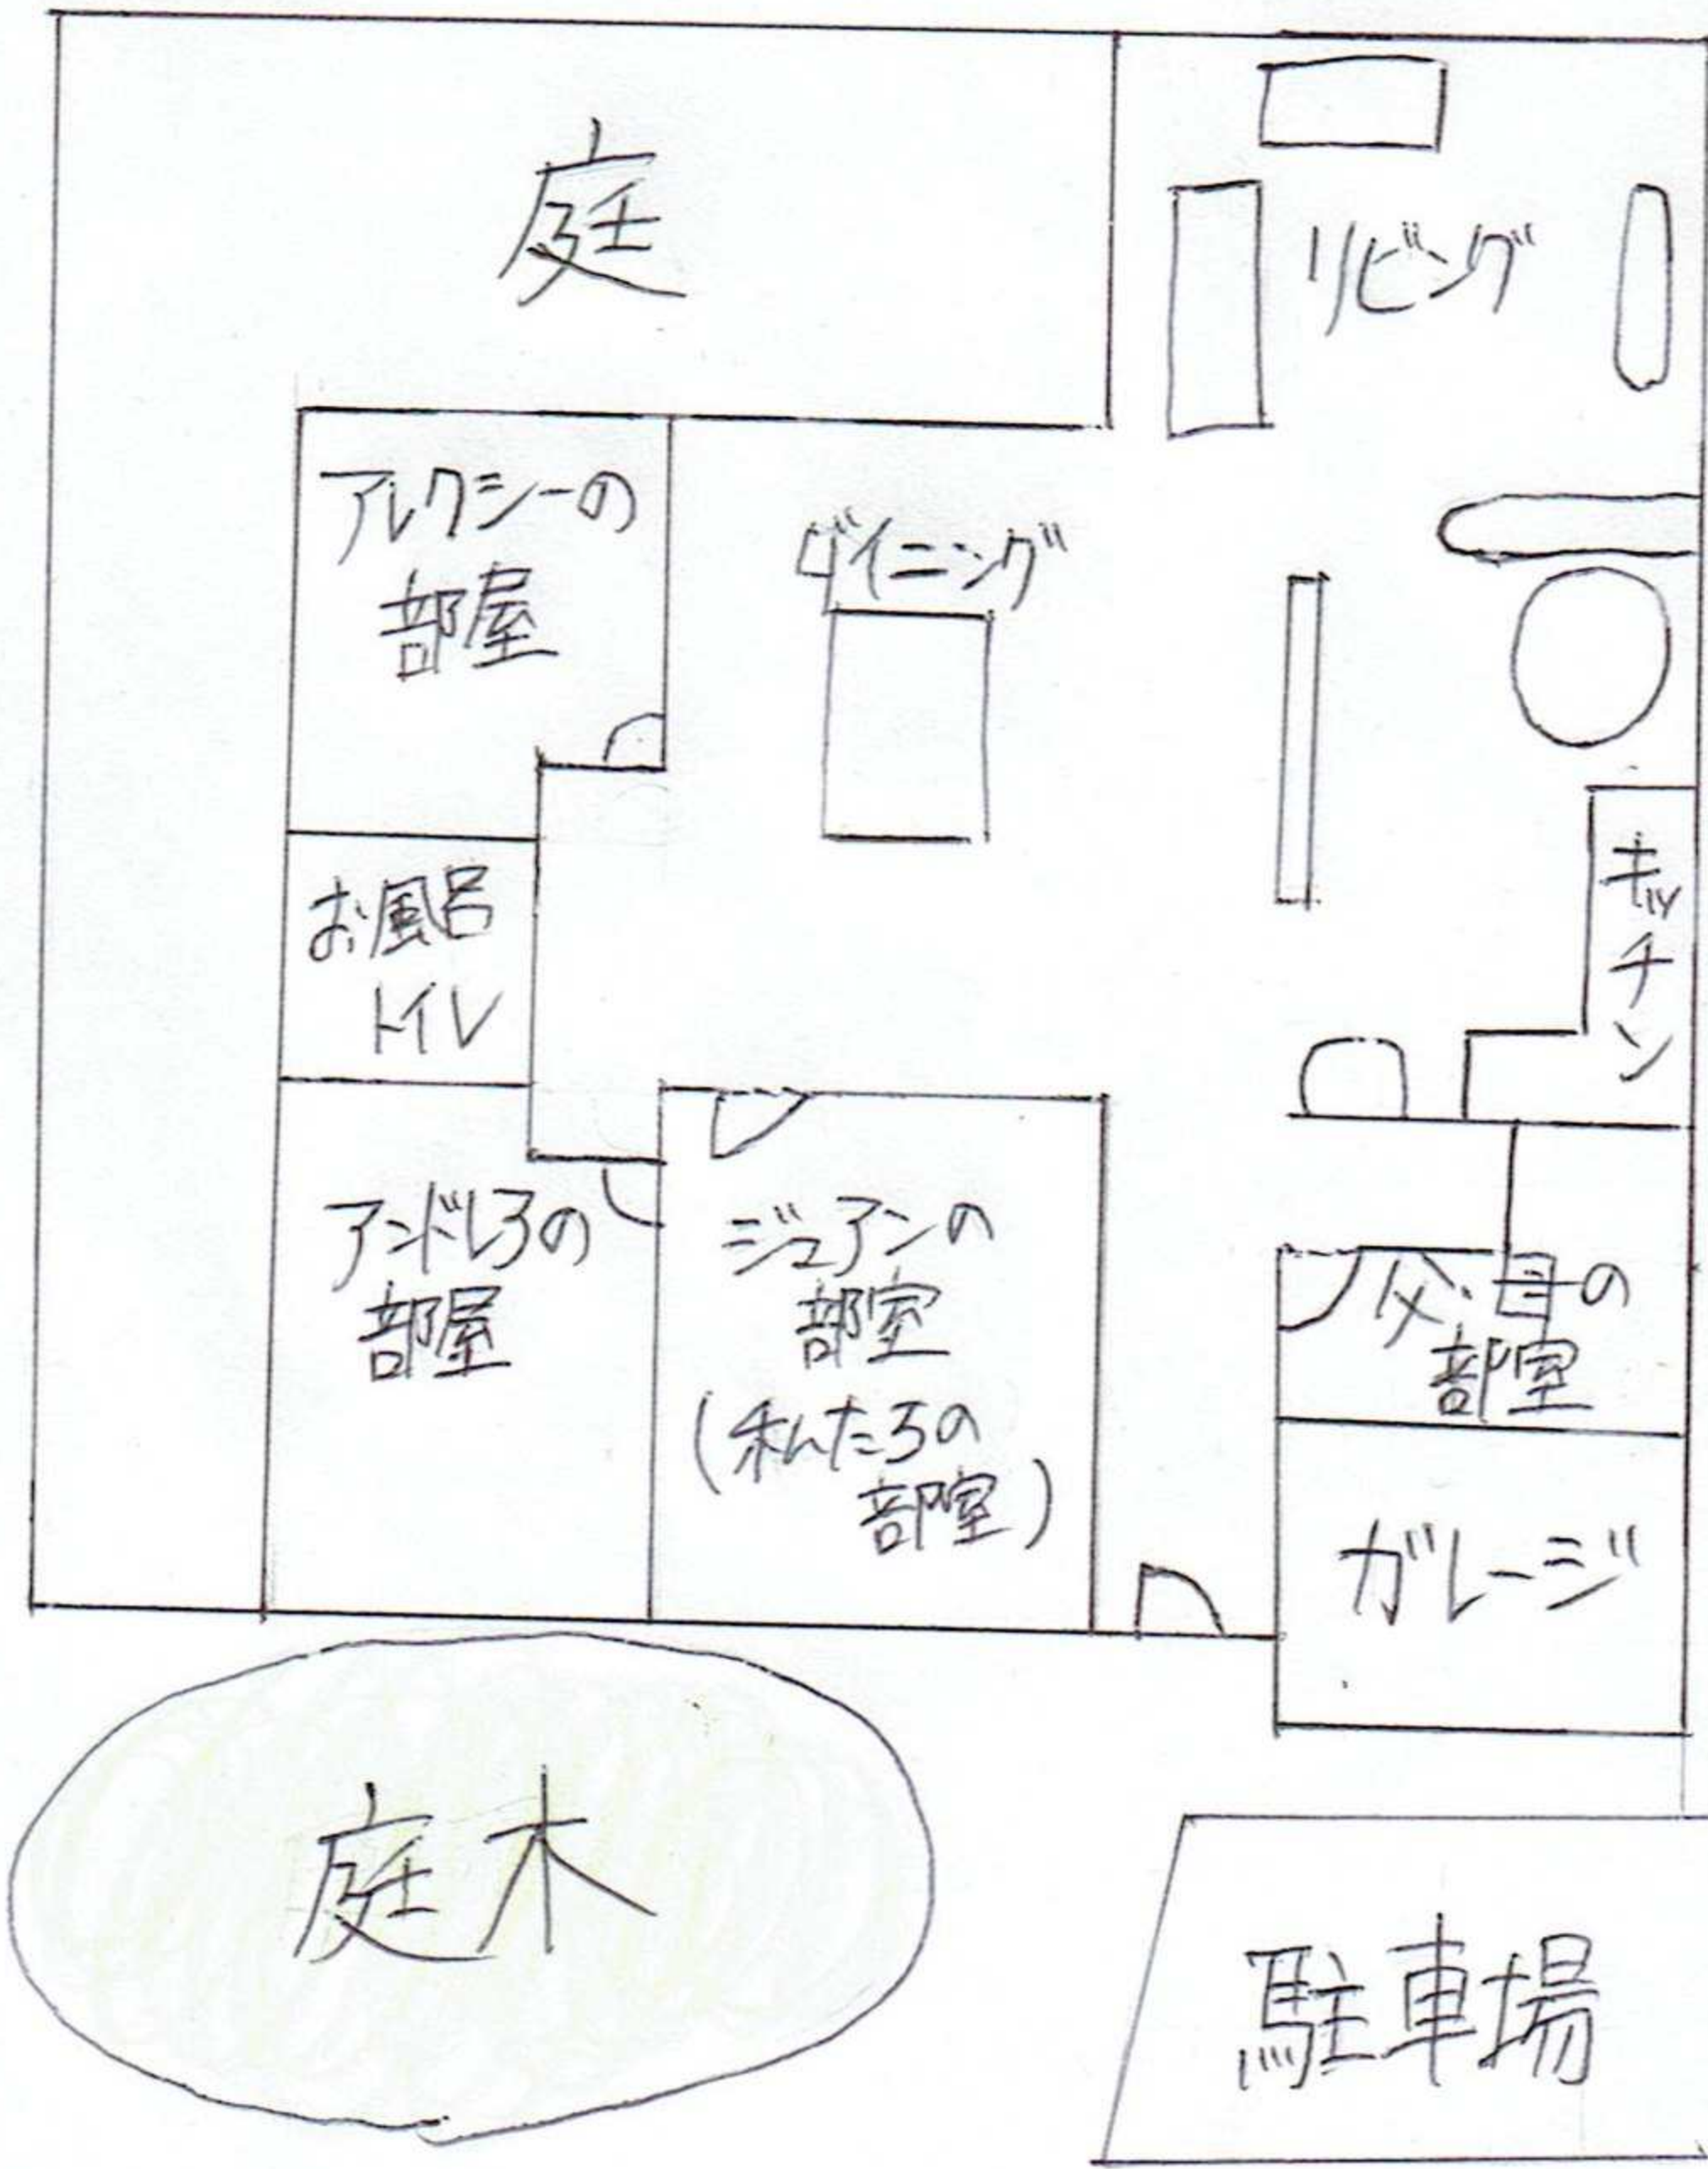 庭
リビング
アレクシーの
部屋
ダイニング
キッチン
お風呂
トイレ
アンドレアの
部屋
ジュアンの
部室
(私たちの
部室)
父、母の
部室
ガレージ
庭木
駐車場